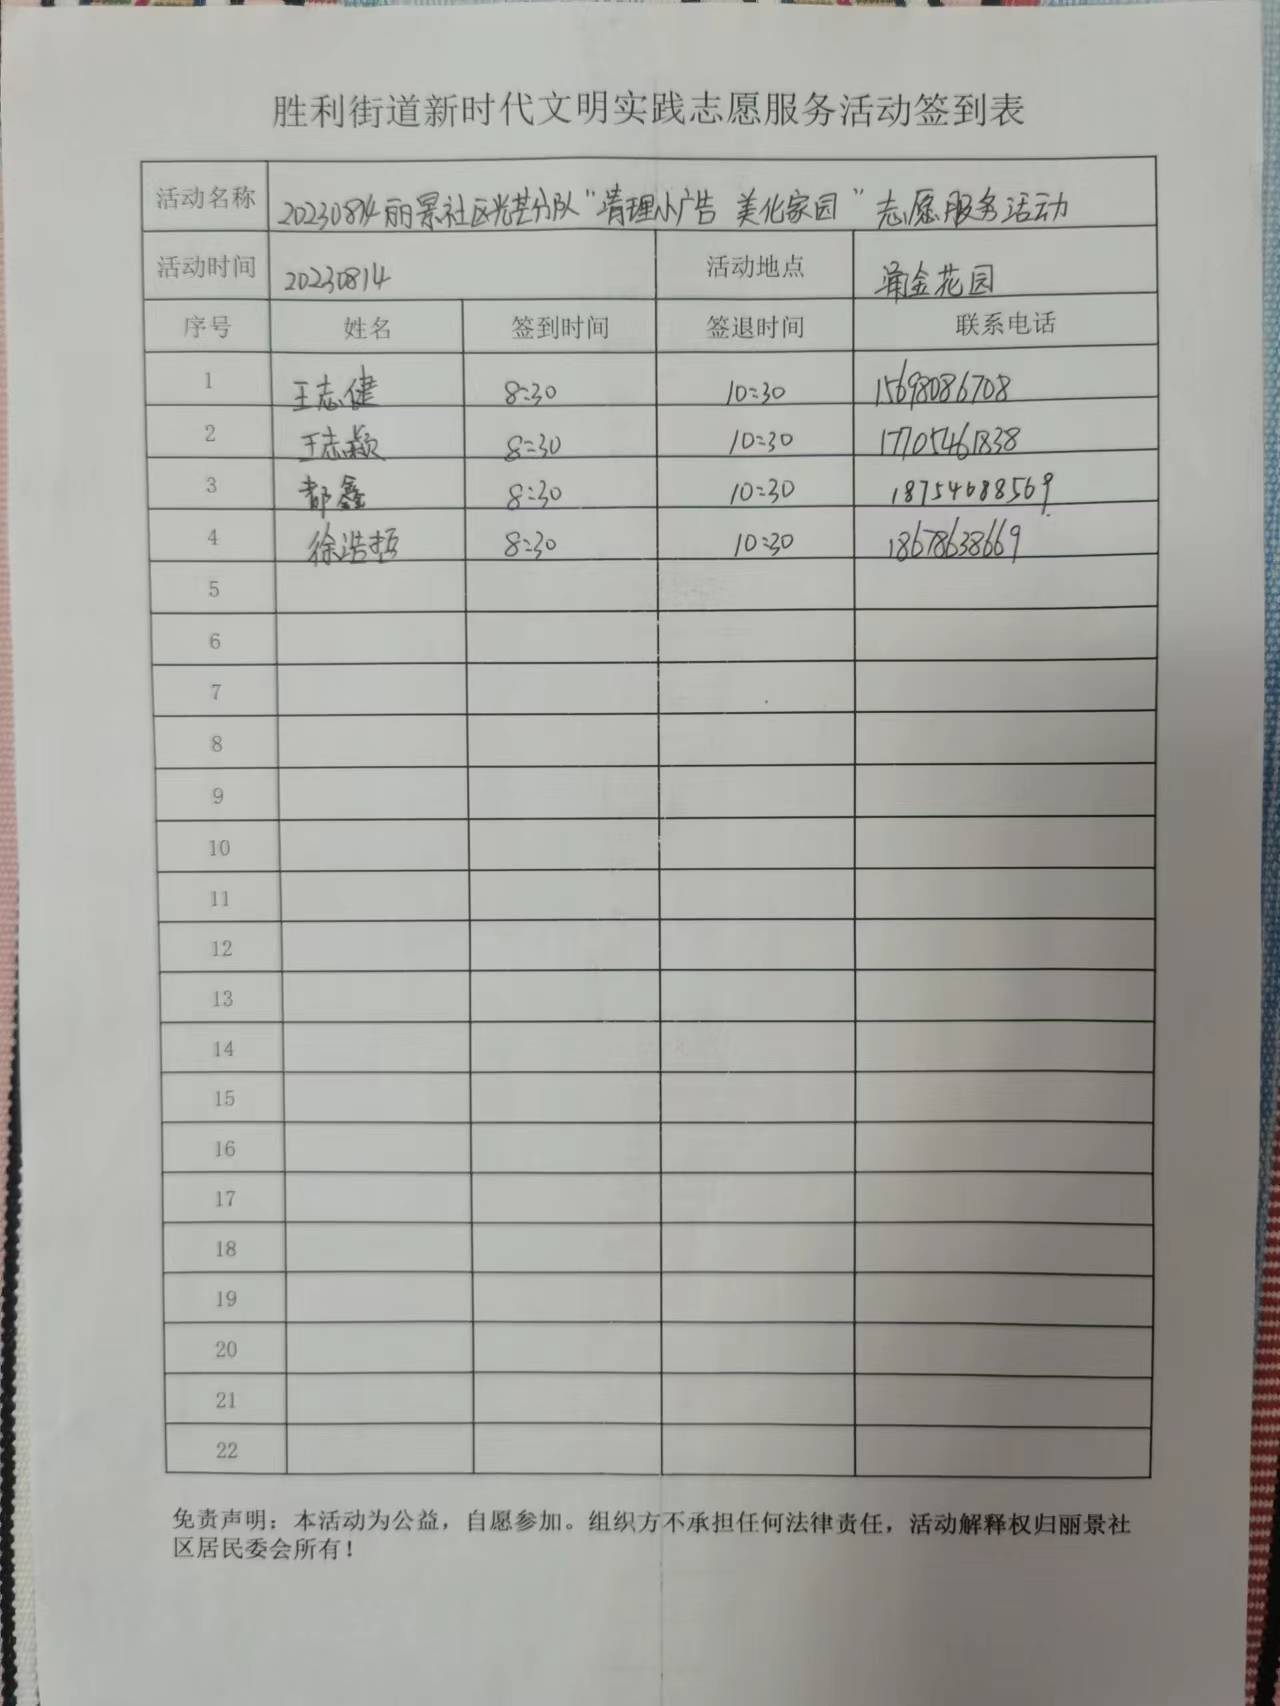 胜利街道新时代文明实践志愿服务活动签到表
活动名称 20230814丽景社区光芒分队“清理小广告 美化家园”志愿服务活动
活动时间 20230814 活动地点 涌金花园
序号 姓名 签到时间 签退时间 联系电话
1 王志健 8:30 10:30 15698086708
2 王志颖 8:30 10:30 17705461838
3 郝鑫 8:30 10:30 18754688569
4 徐浩哲 8:30 10:30 18678638669
5
6
7
8
9
10
11
12
13
14
15
16
17
18
19
20
21
22
免责声明：本活动为公益，自愿参加。组织方不承担任何法律责任，活动解释权归丽景社
区居民委会所有！